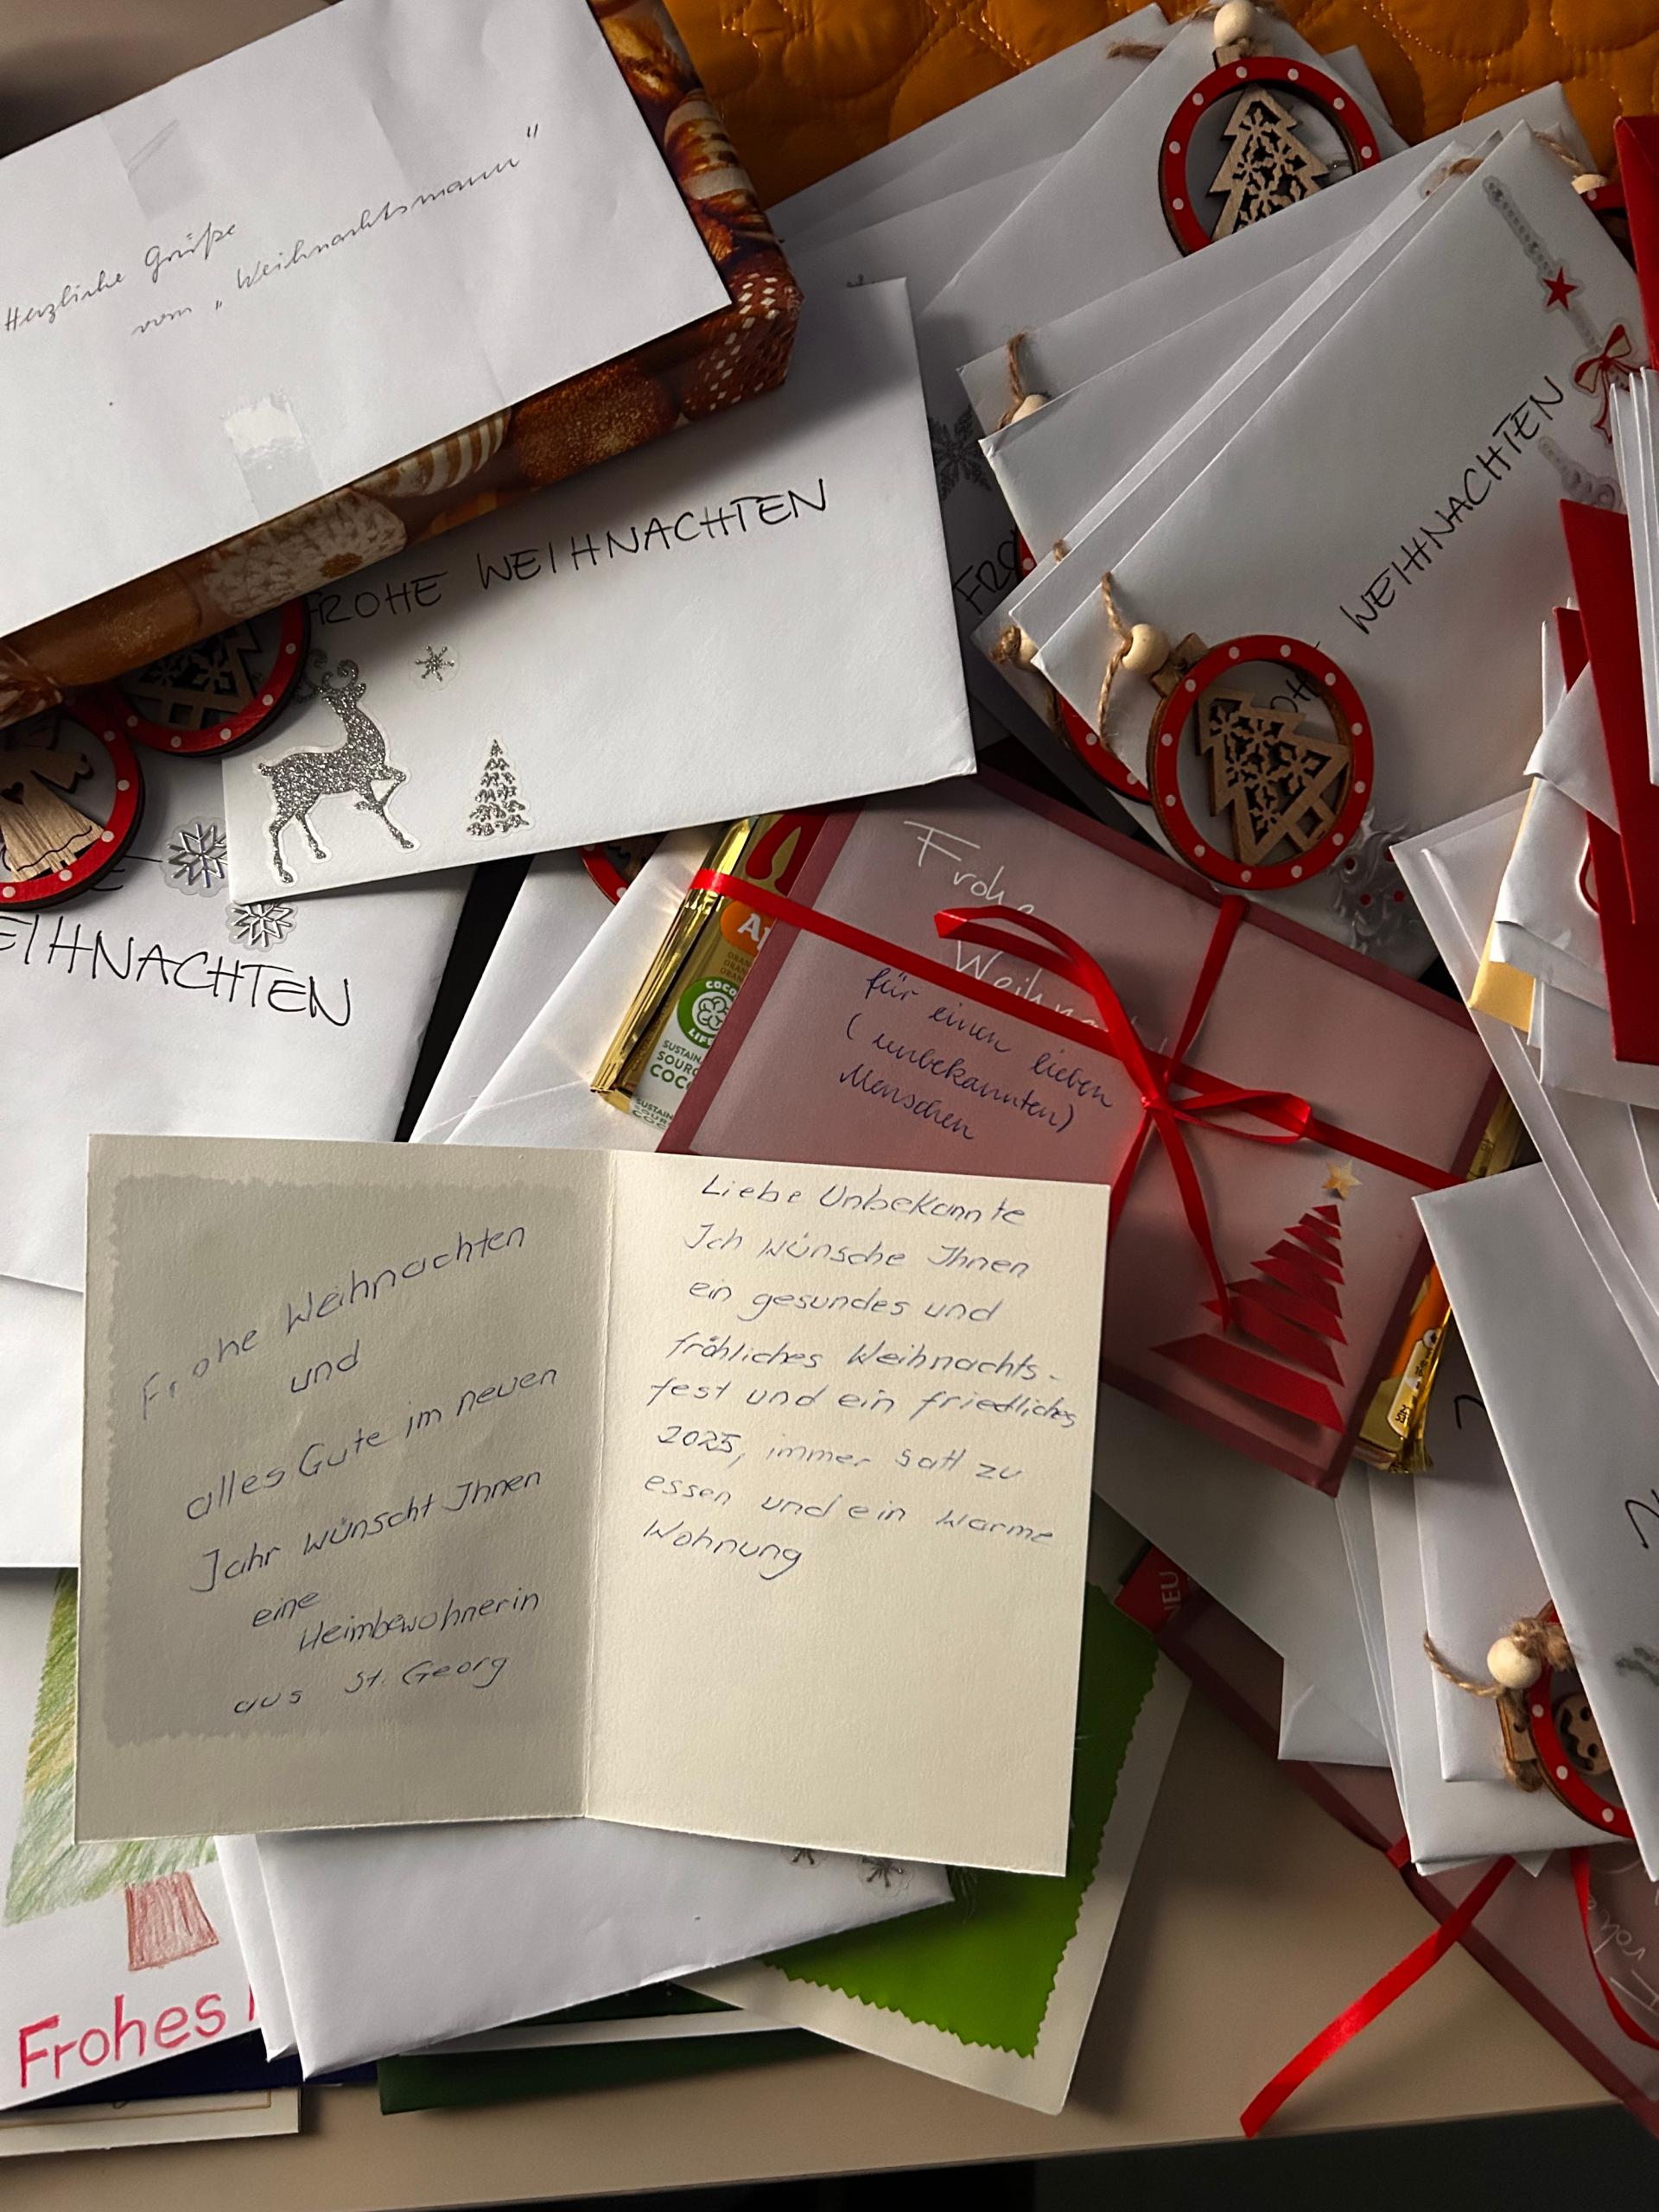 Herzliche Grüße
vom „Weihnachtsmann"
FROHE WEIHNACHTEN
WEIHNACHTEN
FRO
EIHNACHTEN
Frohe
Weihnacht
für einen lieben
(unbekannten)
Menschen
COCO
LIFE
SUSTAIN
SOUR
COC
Frohe Weihnachten
und
alles Gute im neuen
Jahr wünscht Ihnen
eine
Heimbewohnerin
aus St. Georg
Liebe Unbekannte
Ich wünsche Ihnen
ein gesundes und
fröhliches Weihnachts-
fest und ein friedliches
2025, immer satt zu
essen und ein warme
Wohnung
NEU
Frohes